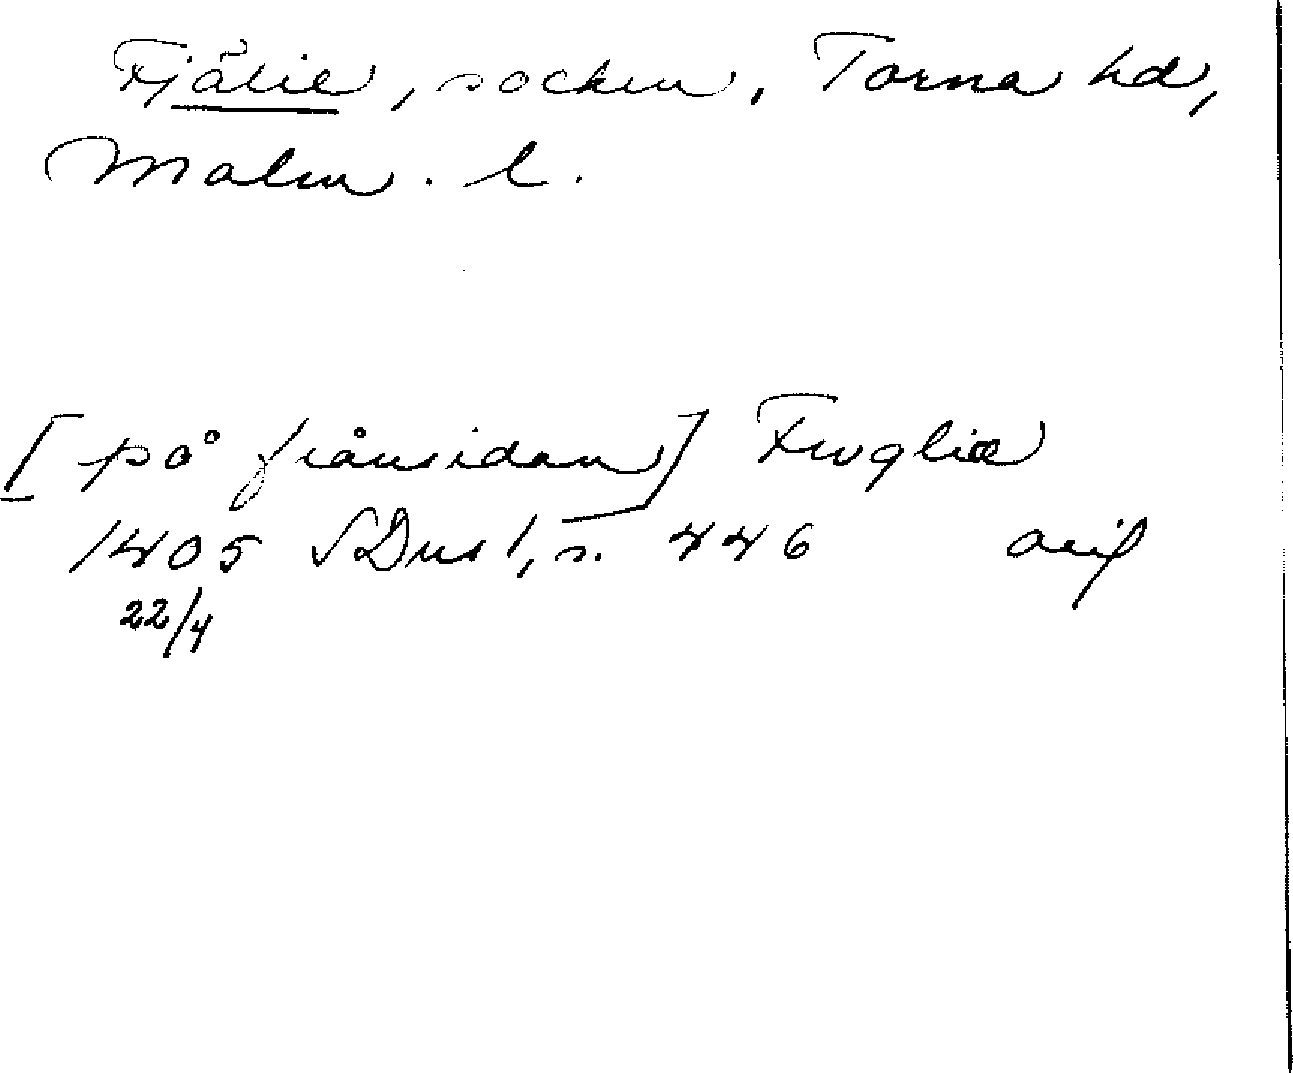 Fjälie, socken, Torna hd,
Malm. l.
[på frånsidan] Fwglie
1405 SDns 1, s. 446 avs
22/4